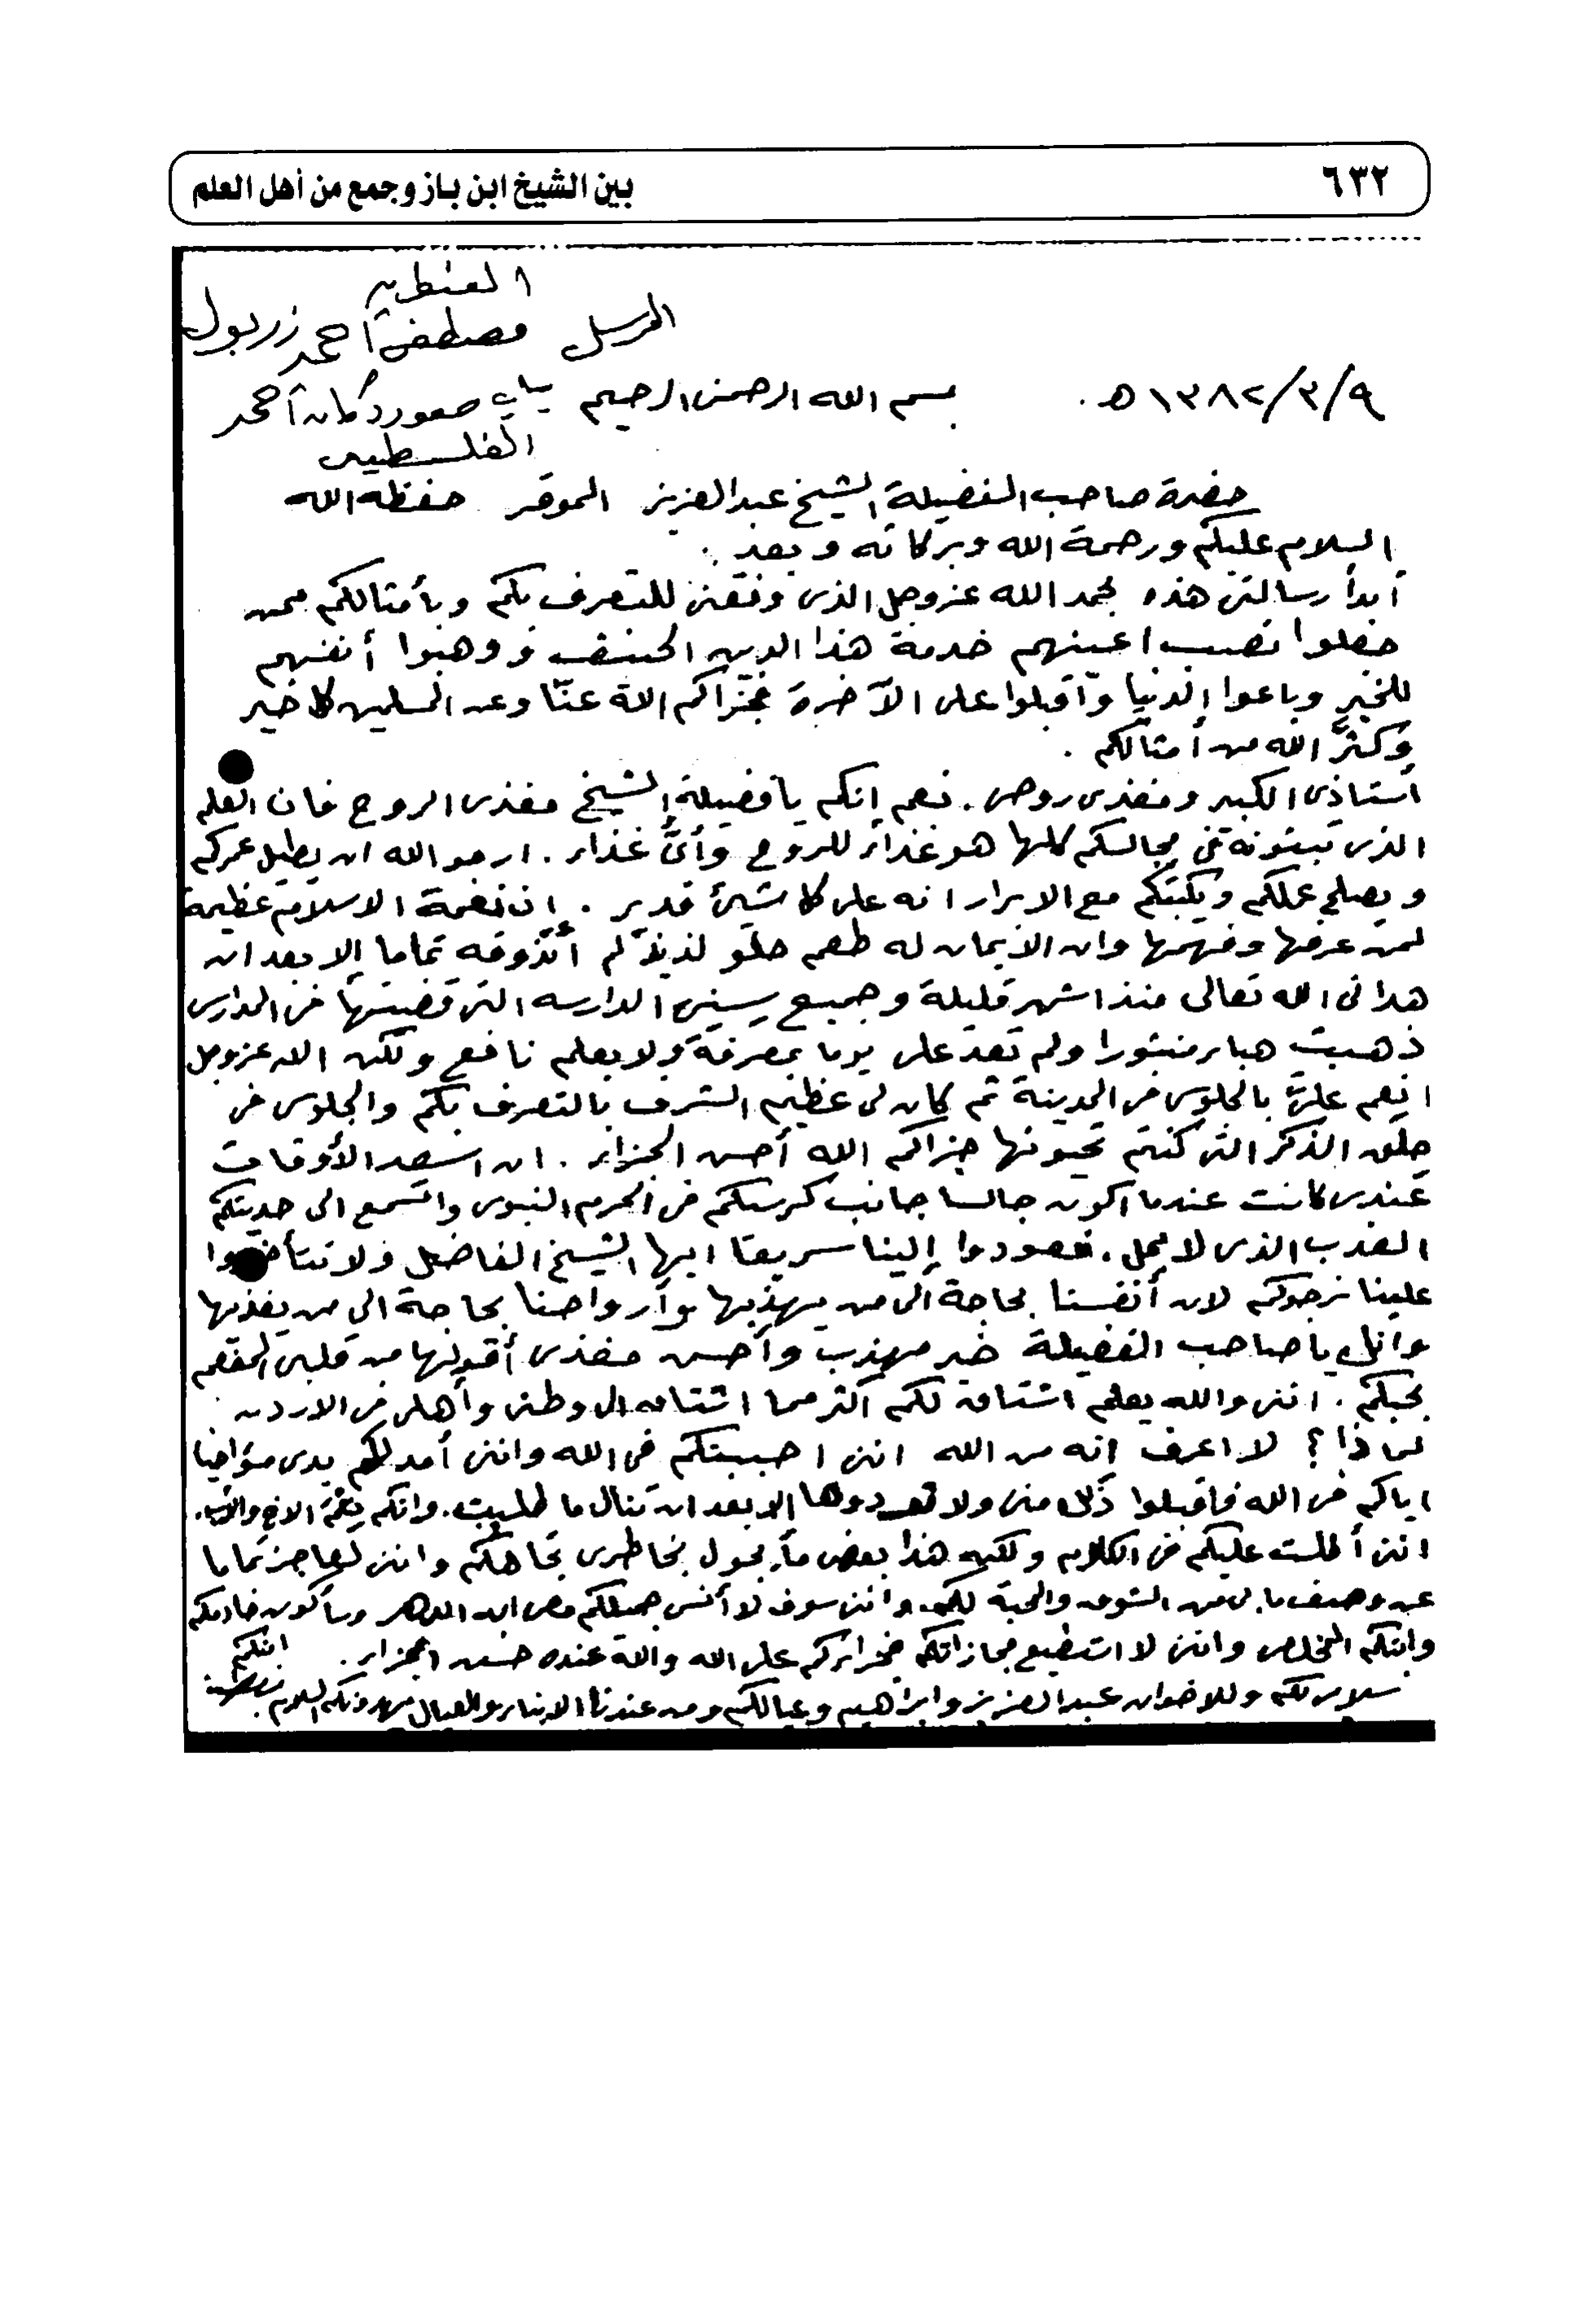 ٦٣٢
بين الشيخ ابن باز وجمع من أهل العلم
المرسل مصطفى أحمد زربول
٩/٣/١٣٨٢هـ. بسم الله الرحمن الرحيم
الفلسطيني
حضرة صاحب الفضيلة الشيخ عبدالعزيز الموقر حفظه الله
السلام عليكم ورحمة الله وبركاته وبعد.
أبدأ رسالتي هذه بحمد الله عز وجل الذي وفقني للتعرف بكم وبأمثالكم ممن
جعلوا نصب أعينهم خدمة هذا الدين الحنيف ووهبوا أنفسهم
للخير وباعوا الدنيا وأقبلوا على الآخرة فجزاكم الله عنّا وعن المسلمين كل خير
وكثّر الله من أمثالكم.
أستاذي الكبير ومغذي روحي. نعم إنكم يا فضيلة الشيخ مغذي الروح فان العلم
الذي تبثونه في مجالسكم كلها هو غذاء للروح وأيُّ غذاء. ارجو الله ان يطيل عمركم
ويصلح عملكم ويكتبكم مع الابرار انه على كل شيء قدير. إن نعمة الاسلام عظيمة
لمن عرفها وفهمها وان الايمان له طعم حلو لذيذ لم أتذوقه تماما إلا بعد ان
هداني الله تعالى منذ اشهر قليلة وجميع سنين الدراسه التي قضيتها في المدارس
ذهبت هباء منثورا ولم تعد علي يوما بمعرفة ولا بعلم نافع ولكن الله عز وجل
انعم عليّ بالجلوس في المدينة ثم كان لي عظيم الشرف بالتعرف بكم والجلوس في
حلق الذكر التي كنتم تحيونها جزاكم الله أحسن الجزاء. ان اسعد الأوقات
عندي كانت عندما اكون جالسا جانب كرسيكم في الحرم النبوي واستمع الى حديثكم
العذب الذي لا يمل. فعودوا إلينا سريعا ايها الشيخ الفاضل ولا تتأخروا
علينا نرجوكم لان أنفسنا بحاجة الى من يهذبها وأرواحنا بحاجة الى من يغذيها
وانك يا صاحب الفضيلة خير مهذب وأحسن مغذي أقولها من قلبي المفعم
بحبكم. انني والله يعلم اشتاق لكم أكثر مما اشتاق الى وطني وأهلي في الاردن
لماذا؟ لا اعرف انه من الله انني احببتكم في الله وانني أمد لكم يدي مؤاخيا
اياكم في الله فاقبلوا ذلك مني ولا تعيدوها الا بعد ان تنال ما طلبت. وانكم نعم الاخ والأب.
انني أطلت عليكم في الكلام ولكن هذا بعض ما يجول بخاطري تجاهكم وانني لعاجز تماما
عن وصف ما بي من الشوق والمحبة لكم وانني سوف لا أنسى جميلكم مدى الدهر وسأكون خادمكم
وابنكم المخلص وانني لا استطيع مجازاتكم فجزاؤكم على الله والله عنده حسن الجزاء. ابنكم
سلامي لكم وللاخوان عبدالعزيز وابراهيم وعيالكم ومن عندنا الابناء والعيال يهدونكم السلام